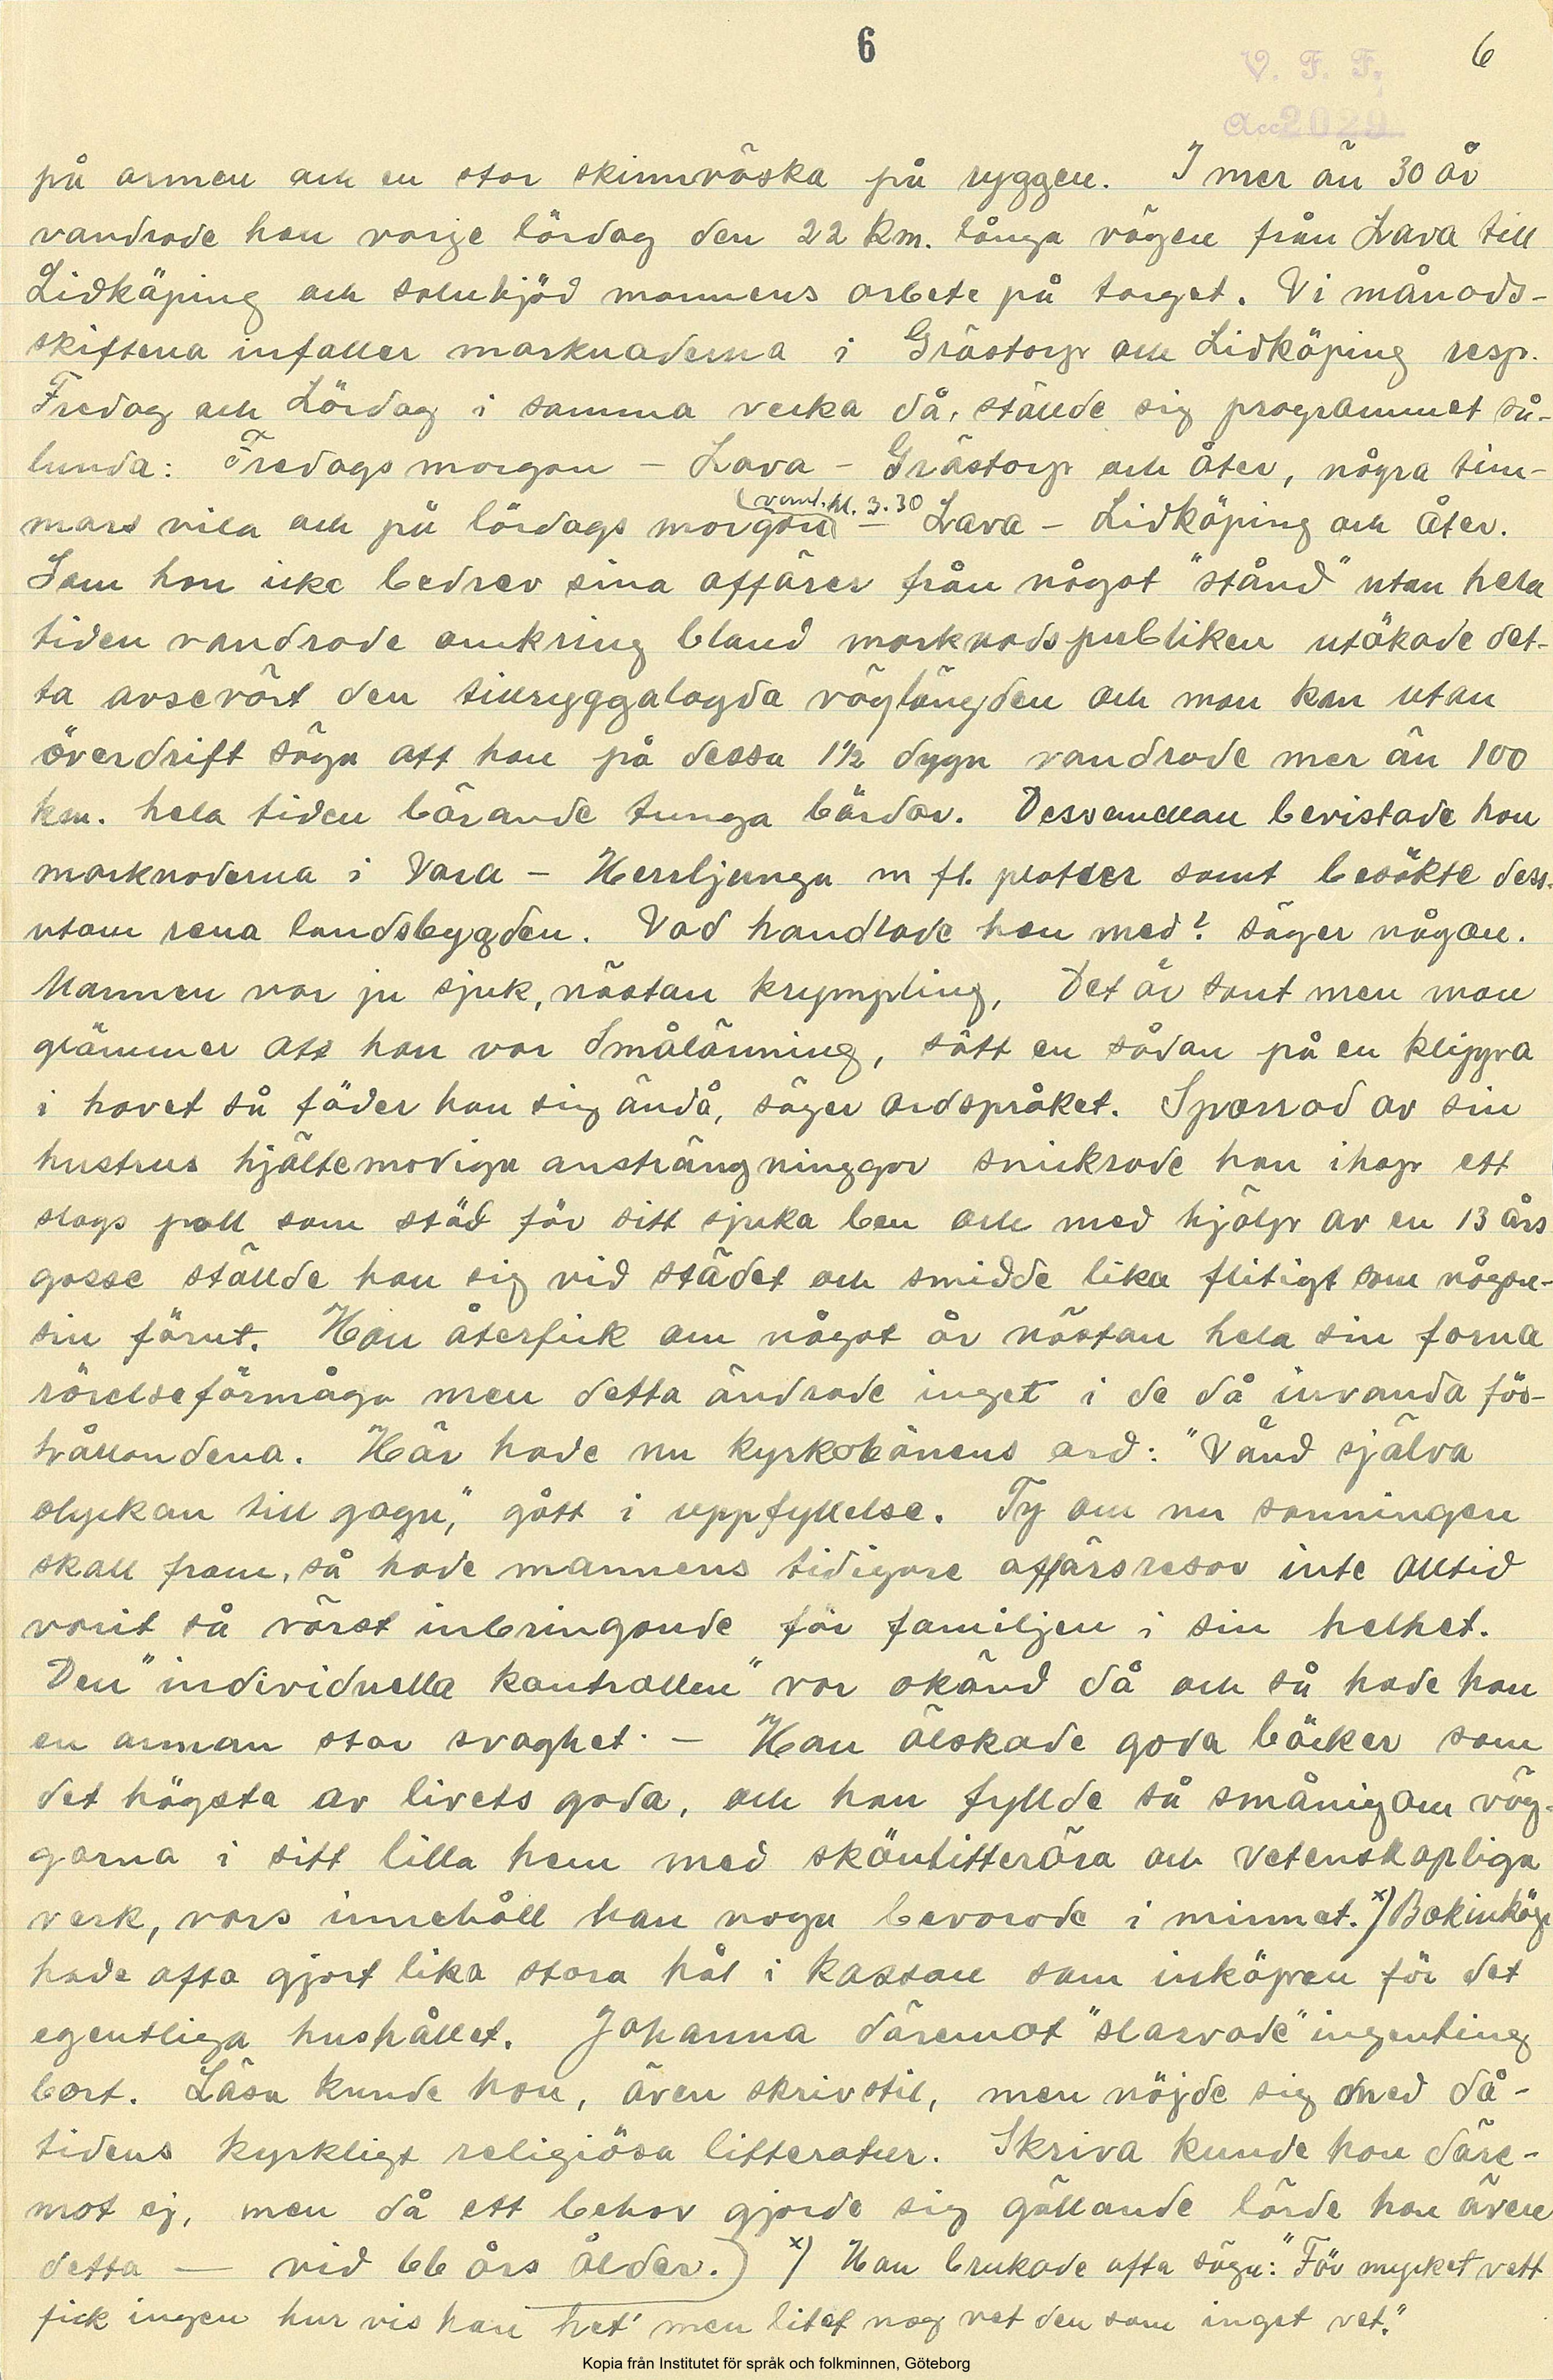 6
6
V. F. F.
Acc 2029
på armen och en stor skinnväska på ryggen. I mer än 30 år
vandrade hon varje lördag den 22 km. långa vägen från Lava till
Lidköping och salubjöd mannens arbete på torget. Vi månads-
skiftena infaller marknaderna i Grästorp och Lidköping resp.
Fredag och Lördag i samma vecka då, ställde sig programmet så-
lunda: Fredagsmorgon – Lava – Grästorp och åter, några tim-
mars vila och på lördags morgon (vanl. kl. 3.30 – Lava – Lidköping och åter.
Som hon icke bedrev sina affärer från något "stånd" utan hela
tiden vandrade omkring bland marknadspubliken utökade det-
ta avsevärt den tillryggalagda väglängden och man kan utan
överdrift säga att hon på dessa 1½ dygn vandrade mer än 100
km. hela tiden bärande tunga bördor. Dessemellan bevistade hon
marknaderna i Vara – Herrljunga m fl. platser samt besökte dess-
utom rena landsbygden. Vad handlade hon med? säger någon.
Mannen var ju sjuk, nästan krympling, Det är sant men man
glömmer att han var Smålänning, sätt en sådan på en klippa
i havet så föder han sig ändå, säger ordspråket. Sporrad av sin
hustrus hjältemodiga ansträngninggar snickrade han ihop ett
slags pall som stöd för sitt sjuka ben och med hjälp av en 13 års
gosse ställde han sig vid städet och smidde lika flitigt som någon-
sin förut. Han återfick om något år nästan hela sin forna
rörelseförmåga men detta ändrade inget i de då invanda för-
hållandena. Här hade nu kyrkobönens ord: "Vänd själva
olyckan till gagn", gått i uppfyllelse. Ty om nu sanningen
skall fram, så hade mannens tidigare affärsresor inte alltid
varit så värst inbringande för familjen i sin helhet.
Den "individuella kontrollen" var okänd då och så hade han
en annan stor svaghet. – Han älskade goda böcker som
det högsta av livets goda, och han fyllde så småningom väg-
garna i sitt lilla hem med skönlitterära och vetenskapliga
verk, vars innehåll han noga bevarade i minnet. x) Bokinköp
hade ofta gjort lika stora hål i kassan som inköpen för det
egentliga hushållet. Johanna däremot "slarvade" ingenting
bort. Läsa kunde hon, även skrivstil, men nöjde sig med då-
tidens kyrkligt religiösa litteratur. Skriva kunde hon däre-
mot ej, men då ett behov gjorde sig gällande lärde hon även
detta — vid 66 års ålder.) x) Han brukade ofta säga: "För mycket vett
fick ingen hur vis han het' men litet nog vet den som inget vet."
Kopia från Institutet för språk och folkminnen, Göteborg